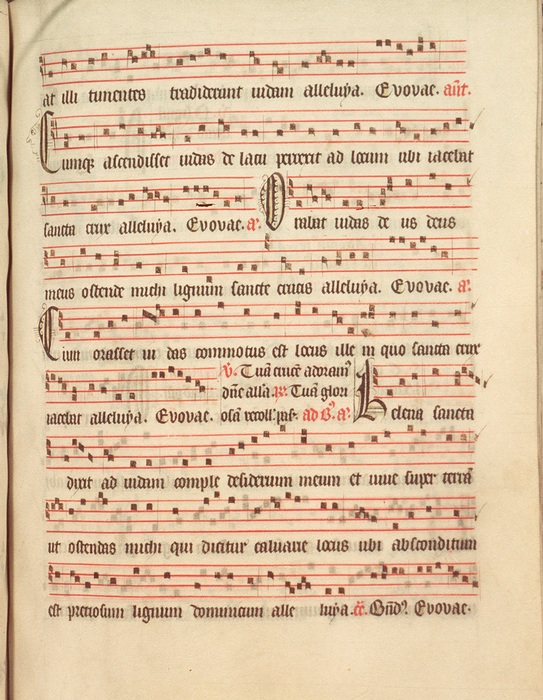 at illi timentes tradiderunt iudam alleluya. Evovae. añt.
Cumqz ascendisset iudas de lacu perrexit ad locum ubi iacebat
sancta crux alleluya. Evovae. a.ͬ Orabat iudas deus deus
meus ostende michi lignum sancte crucis alleluya. Evovae. a.ͬ
Cum orasset iudas commotus est locus ille in quo sancta crux
℣. Tuā crucē adoram⁹
dn̄e allā. ℟. Tuā glori
iacebat alleluya. Evovae. osā recoll. pas. ad B. a. Helena sancta
dixit ad iudam comple desiderium meum et vive super terrā
ut ostendas michi qui dicitur calvarie locus ubi absconditum
est preciosum lignum dominicum alleluya. c̄c̄. Bn̄d. Evovae.